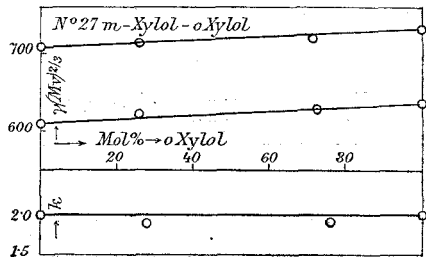 Nº 27 m-Xylol-oXylol
700
γ(Mv)2/3
600
Mol%→oXylol
20 40 60 80
2·0
k
1·5